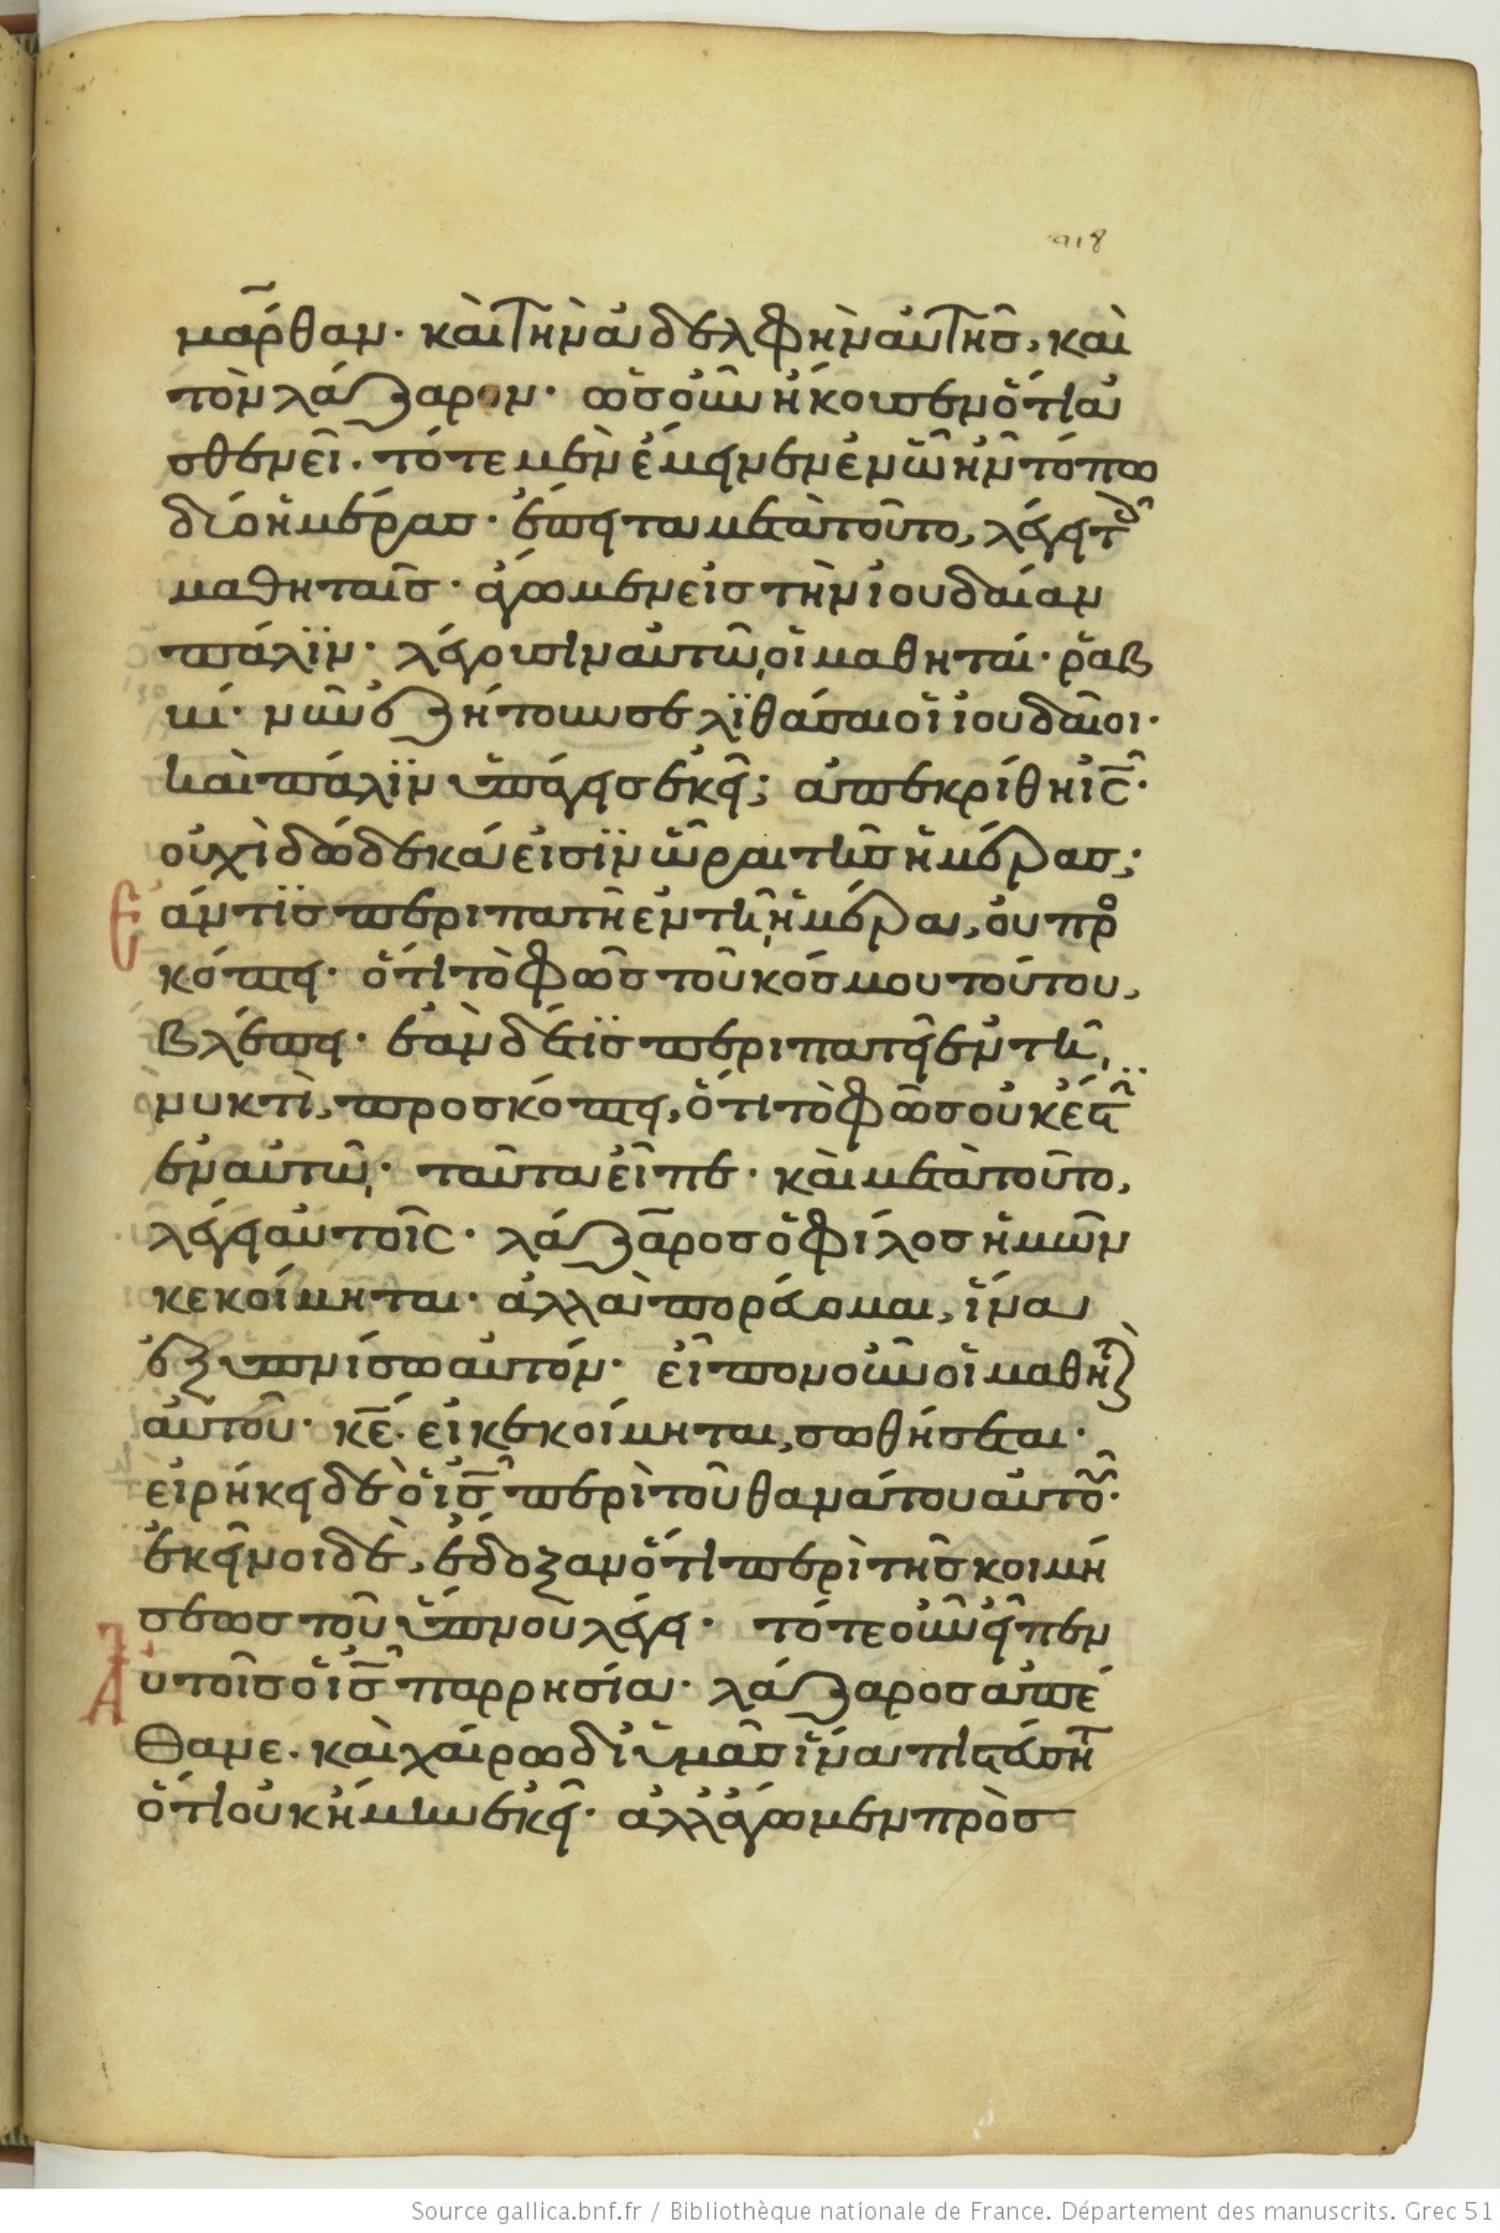 218
μάρθαν· καὶ τὴν ἀδελφὴν αὐτῆς, καὶ
τὸν λάζαρον· ὡς οὖν ἤκουσεν ὅτι ἀ
σθενεῖ· τότε μὲν ἔμεινεν ἐν ὧ ἦν τόπω
δύο ἡμέρας· ἔπειτα μετὰ τοῦτο, λέγει τοῖ
μαθηταῖς· ἄγωμεν εἰς τὴν ἰουδαίαν
πάλϊν· λέγουσιν αὐτῶ, οἱ μαθηταί· ῥαβ
βί· νῦν ἐζήτουν σε λϊθάσαι οἱ ἰουδαῖοι·
καὶ πάλϊν ὑπάγεις ἐκεῖ; ἀπεκρίθη ἰ̅ς̅·
οὐχὶ δώδεκά εἰσϊν ὧραι τῆς ἡμέρας;
Ἐάν τϊς περιπατῆ ἐν τῆ, ἡμέρα, οὐ προ
κόπτει· ὅτι τὸ φῶς τοῦ κόσμου τούτου,
βλέπει· ἐὰν δέ τϊς περιπατεῖ ἐν τῆ,
νυκτὶ, προσκόπτει, ὅτι τὸ φῶς οὐκ ἔστϊ
ἐν αὐτῶ,· ταῦτα εἶπε· καὶ μετὰ τοῦτο,
λέγει αὐτοῖς· λάζαρος ὁ φίλος ἡμῶν
κεκοίμηται· ἀλλὰ πορεύομαι, ἵνα
ἐξυπνίσω αὐτόν· εἶπον οὖν οἱ μαθητὶ
αὐτοῦ· κ̅ε̅· εἰ κεκοίμηται, σωθήσεται·
εἰρήκει δὲ ὁ ἰ̅ς̅ περὶ τοῦ θανάτου αὐτοῦ·
ἐκεῖνοι δὲ, ἔδοξαν ὅτι περὶ τῆς κοιμή
σεως τοῦ ὕπνου λέγει· τότε οὖν εἶπεν
Αὐτοῖς ὁ ἰ̅ς̅ παρρησία· λάζαρος ἀπέ
θανε· καὶ χαίρω δι' ὑμᾶς ἵνα πιστεύσητ
ὅτι οὐκ ἤμην ἐκεῖ· ἀλλ' ἄγωμεν πρὸς
Source gallica.bnf.fr / Bibliothèque nationale de France. Département des manuscrits. Grec 51